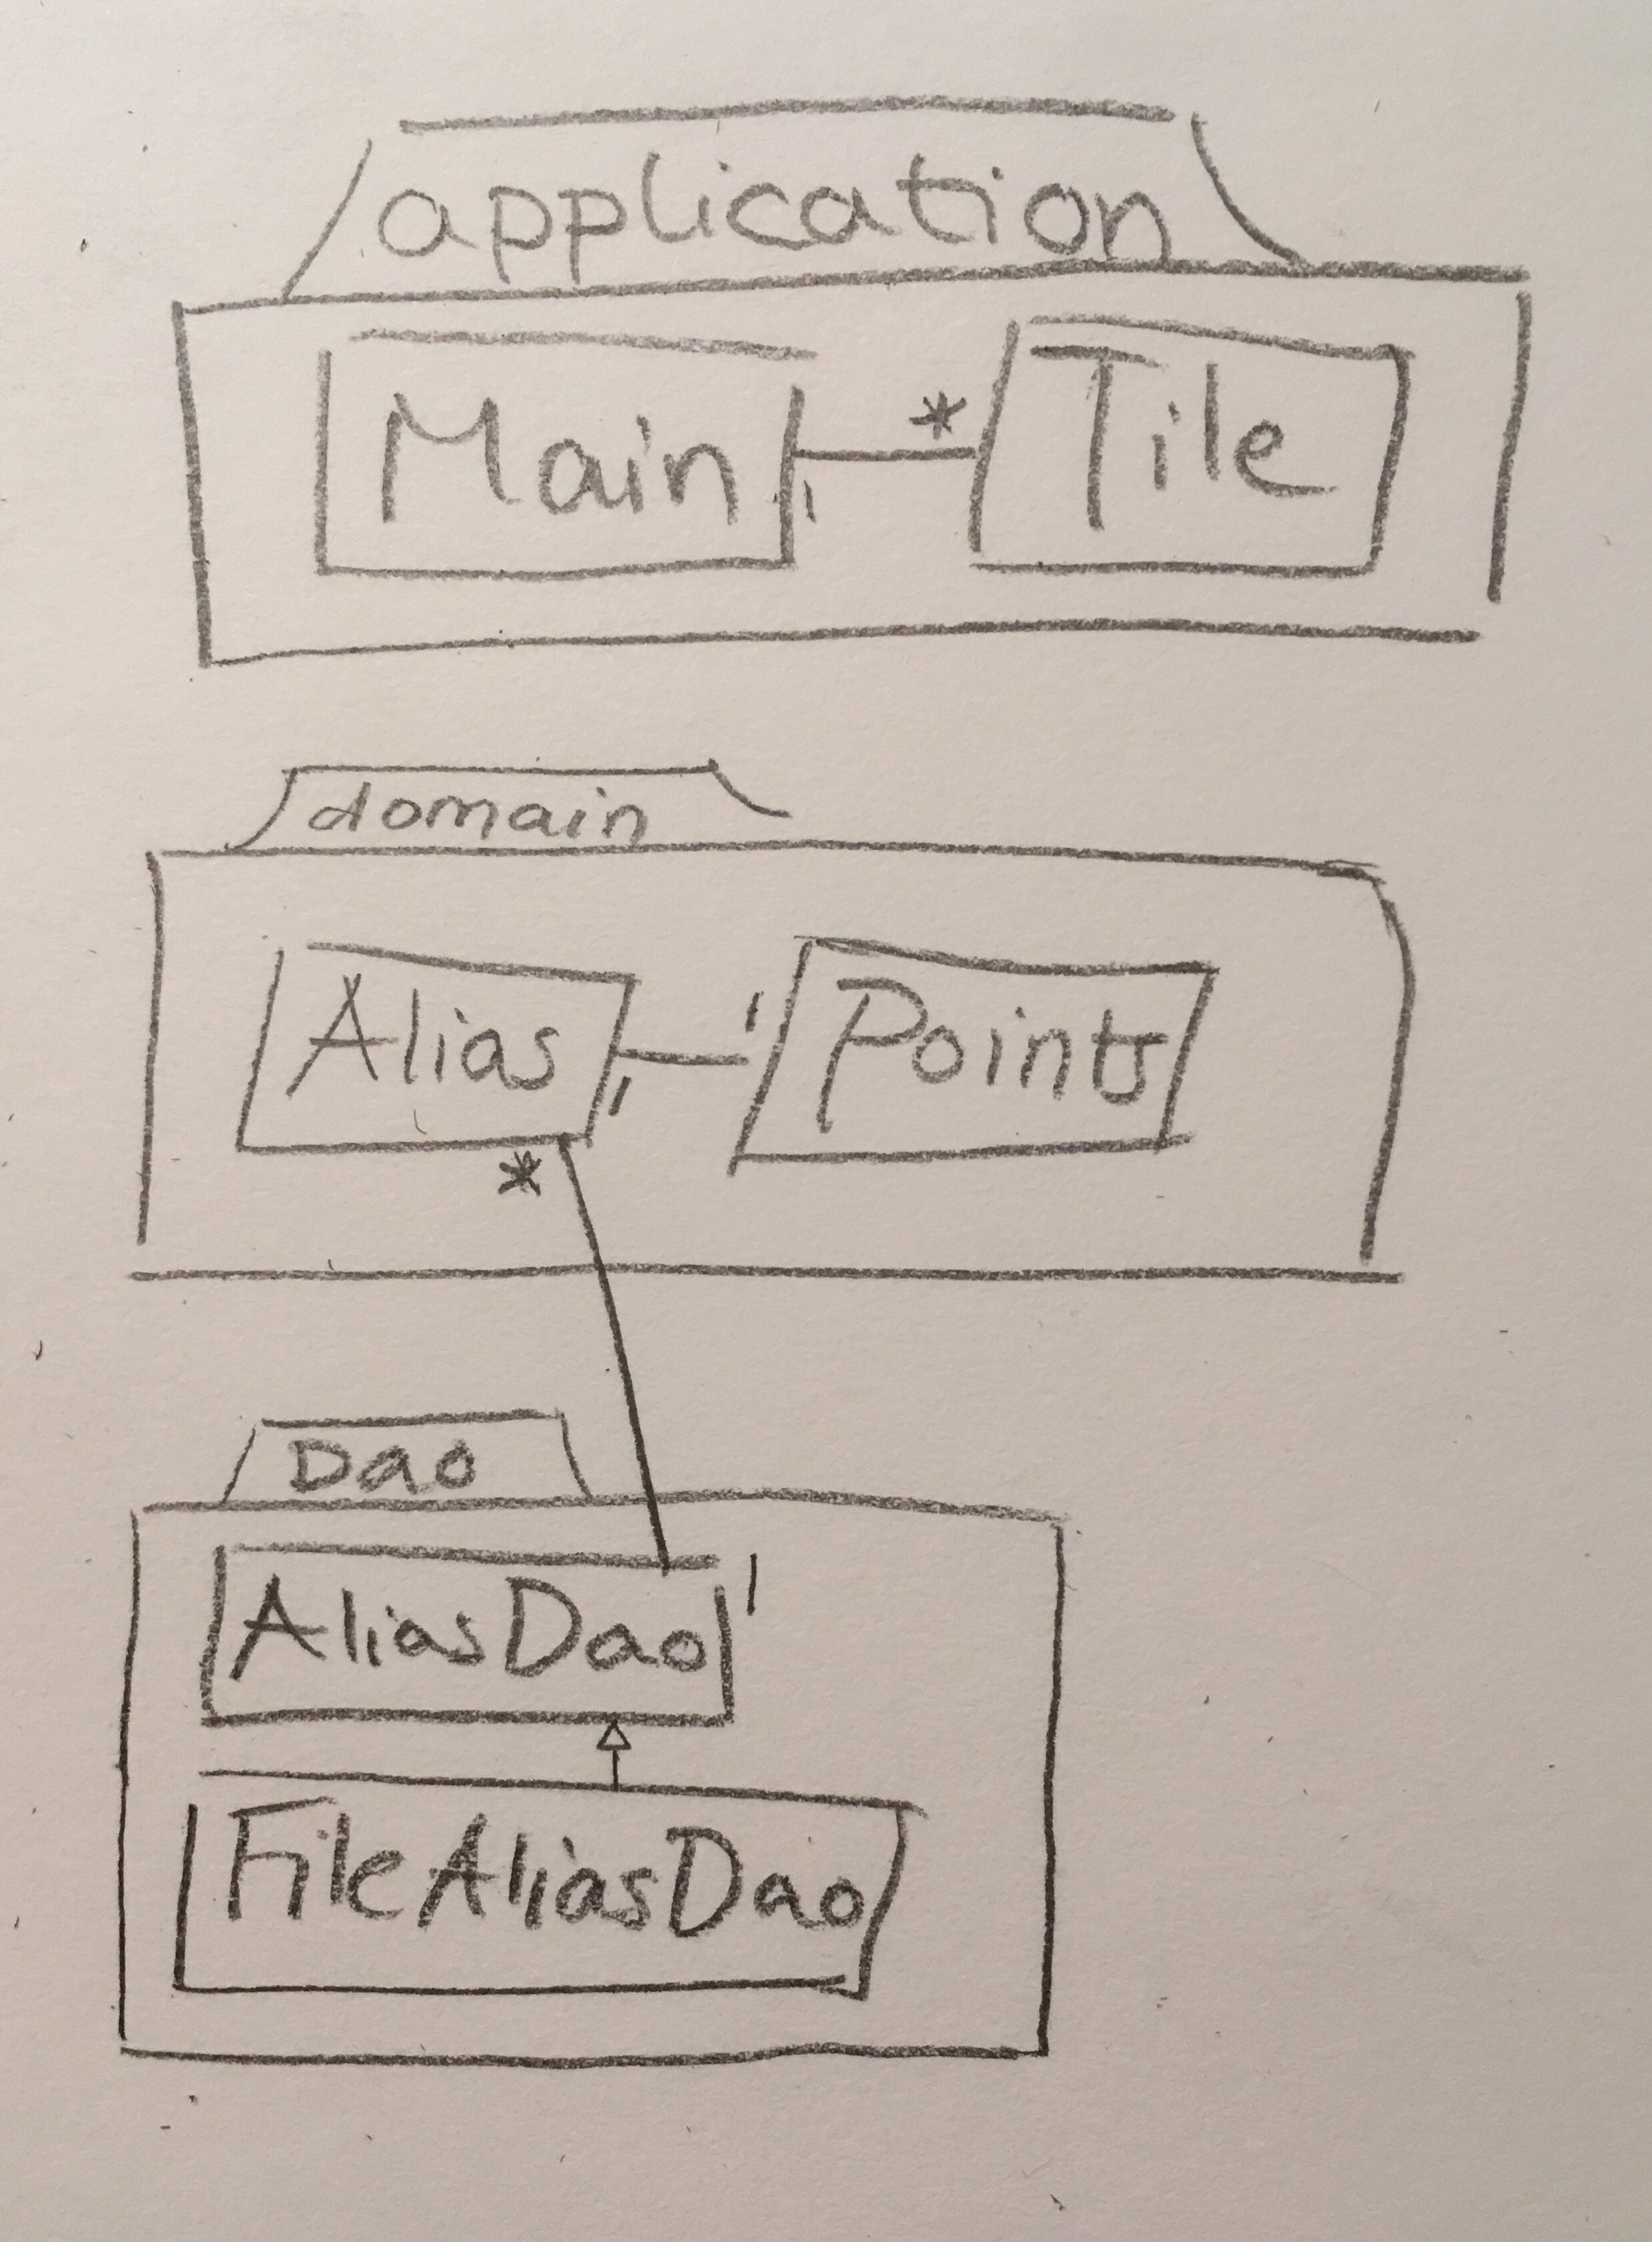 application
Main 1 * Tile
domain
Alias 1 1 Points
*
Dao
AliasDao 1
FileAliasDao